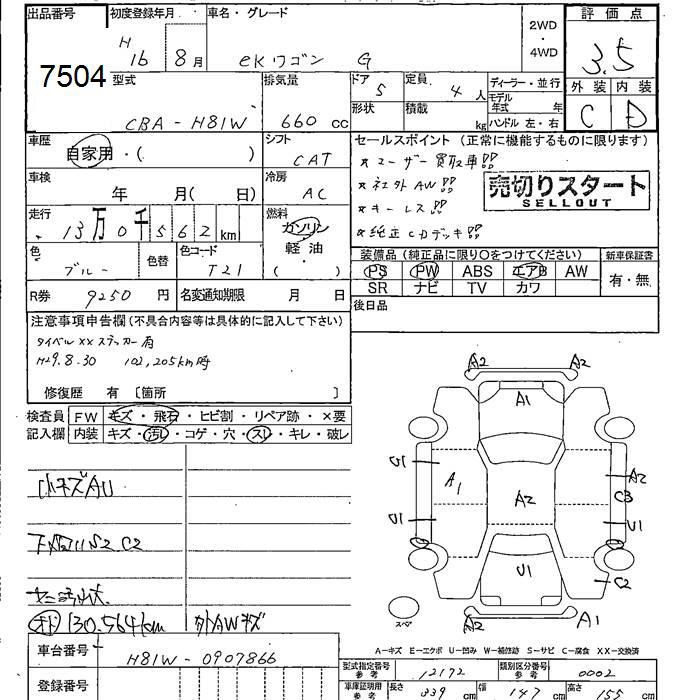 出品番号
7504
初度登録年月
H 16 8月
車名・グレード
eKワゴン G
2WD
・
4WD
評価点
3.5
外装 内装
C D
型式
CBA-H81W
排気量
660 cc
ドア
5
定員
4人
形状
積載
kg
ディーラー・並行
モデル年式 年
ハンドル 左・右
車歴
自家用・( )
シフト
CAT
セールスポイント (正常に機能するものに限ります)
*ユーザー買取車!!
*社外AW!!
*キーレス!!
*純正CDデッキ!!
売切りスタート
SELLOUT
車検
年 月( 日)
冷房
AC
走行
13万0千562km
燃料
ガソリン
軽油
( ・ )
色
ブルー
色替
色コード
T21
装備品(純正品に限り○をつけてください)
PS PW ABS エアB AW
SR ナビ TV カワ
新車保証書
有・無
R券 9250円
名変通知期限 月 日
後日品
注意事項申告欄(不具合内容等は具体的に記入して下さい)
タイベル××ステッカー有
H29.8.30 102,205km時
修復歴 有〔箇所 〕
検査員 FW キズ・飛石・ヒビ割・リペア跡・×要
記入欄 内装 キズ・汚レ・コゲ・穴・スレ・キレ・破レ
小キズAU
S2 C2
オド 130,564km 外AWキズ
A2 A2
A1
U1
A1
A2
A2
C3
U1
U1
U1
C2
A2
A1
スペア
A-キズ E-エクボ U-凹み W-補修跡 S-サビ C-腐食 XX-交換済
車台番号
H81W-0907866
登録番号
型式指定番号
参考
12172
類別区分番号
参考
0002
車庫証明用
参考
長さ 339 cm
幅 147 cm
高さ 155 cm